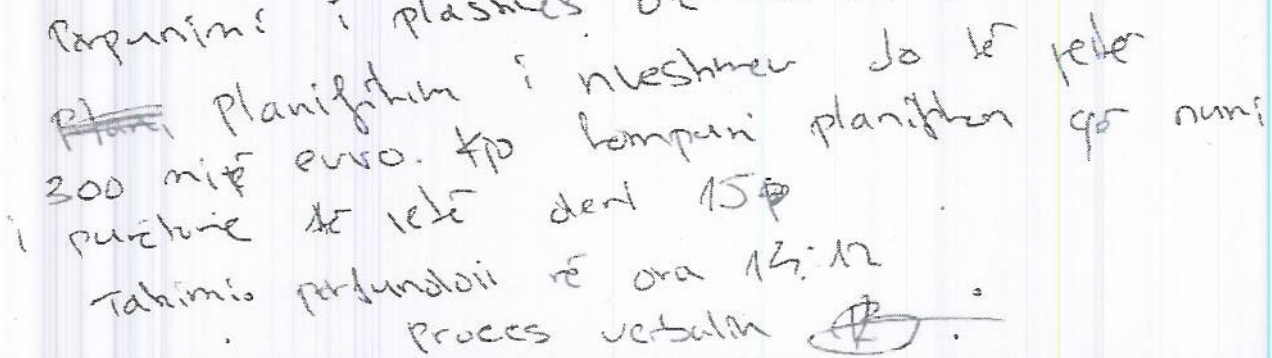 Përpunimi i plasmes
planifikim i nleshmeu do të jetë
300 mijë euro. Kjo kompani planifikon që numri
i puntorve të jetë deri 15
Takimi përfundoii në ora 14:12
Proces verbalin